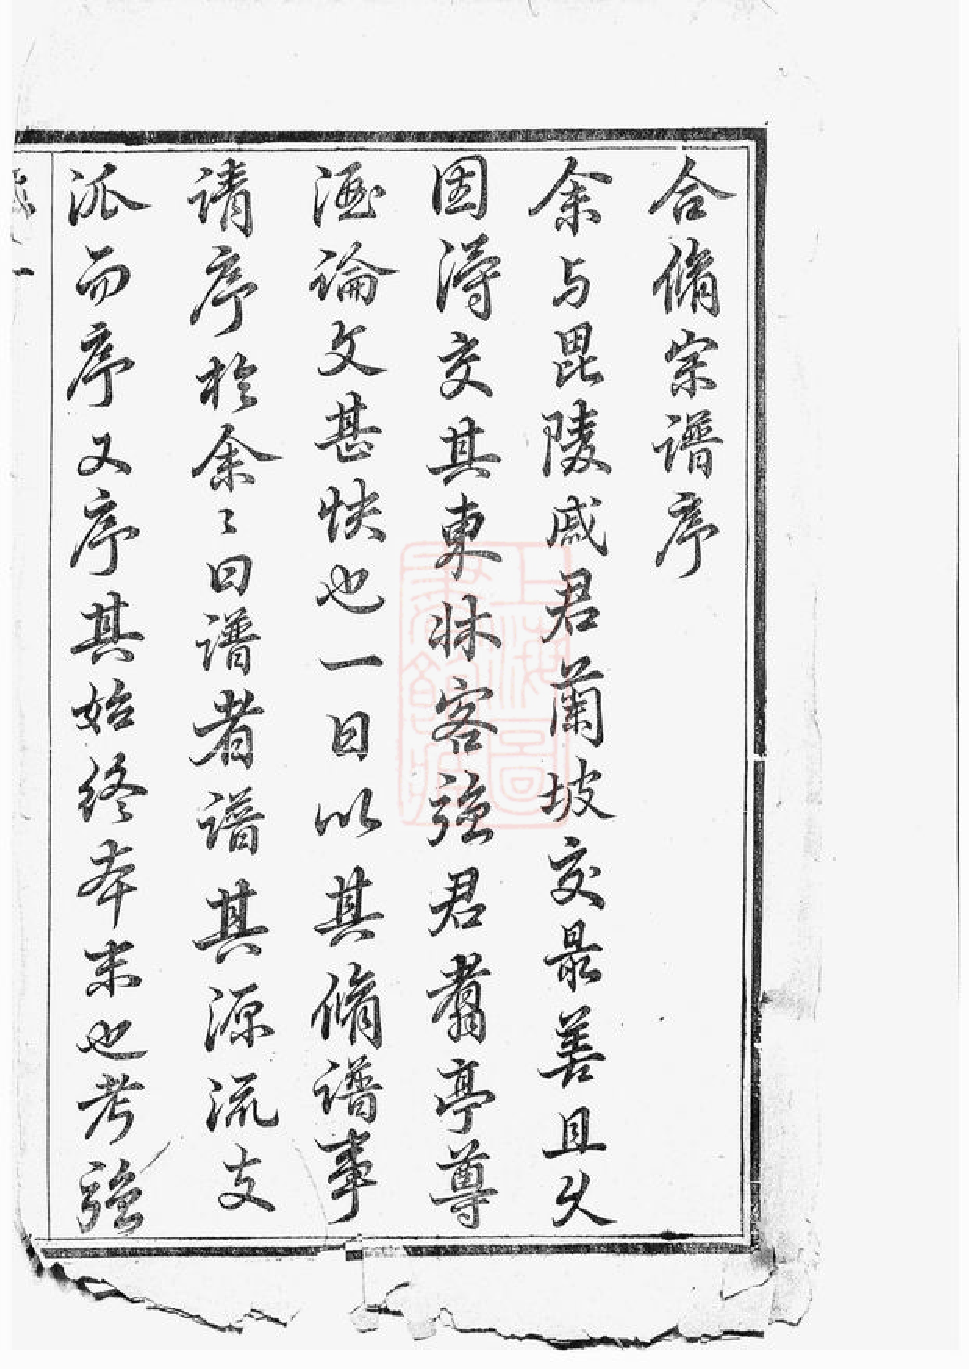 合脩宗譜序
余与毘陵戚君蘭坡交最善且久
因得交其東牀客強君翥亭尊
酒論文甚快也一日以其脩譜事
請序於余〻曰譜者譜其源流支
派而序又序其始終本末也考強
上海圖書館藏